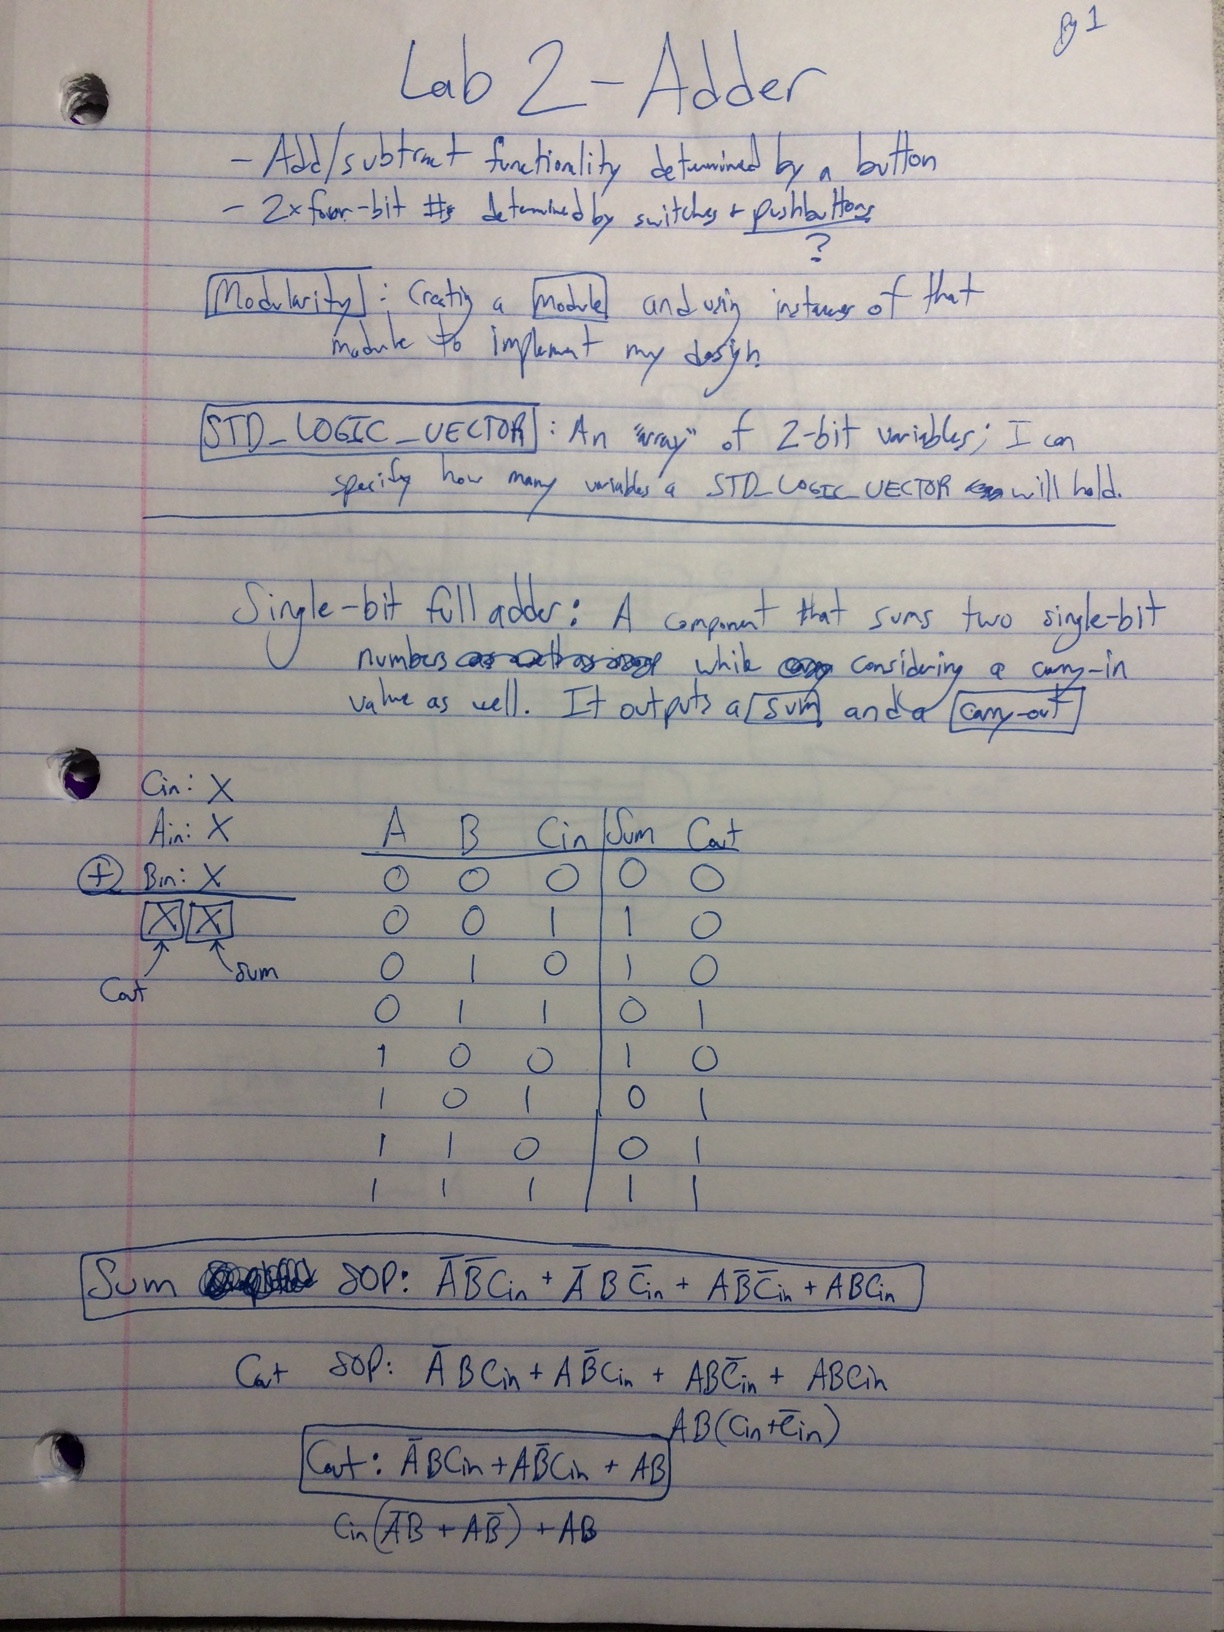 Pg 1
Lab 2 - Adder
- Add/subtract functionality determined by a button
- 2x four-bit #s determined by switches + pushbuttons
?
Modularity : Creating a module and using instances of that
module to implement my design
STD_LOGIC_VECTOR : An "array" of 2-bit variables; I can
specify how many variables a STD_LOGIC_VECTOR will hold.
Single-bit full adder: A component that sums two single-bit
numbers while considering a carry-in
value as well. It outputs a sum and a carry-out
Cin: X
Ain: X
+ Bin: X
X X
Cout sum
A B Cin Sum Cout
0 0 0 0 0
0 0 1 1 0
0 1 0 1 0
0 1 1 0 1
1 0 0 1 0
1 0 1 0 1
1 1 0 0 1
1 1 1 1 1
Sum SOP: A̅B̅Cin + A̅BC̅in + AB̅C̅in + ABCin
Cout SOP: A̅BCin + AB̅Cin + ABC̅in + ABCin
AB(Cin+C̅in)
Cout: A̅BCin + AB̅Cin + AB
Cin(A̅B + AB̅) + AB